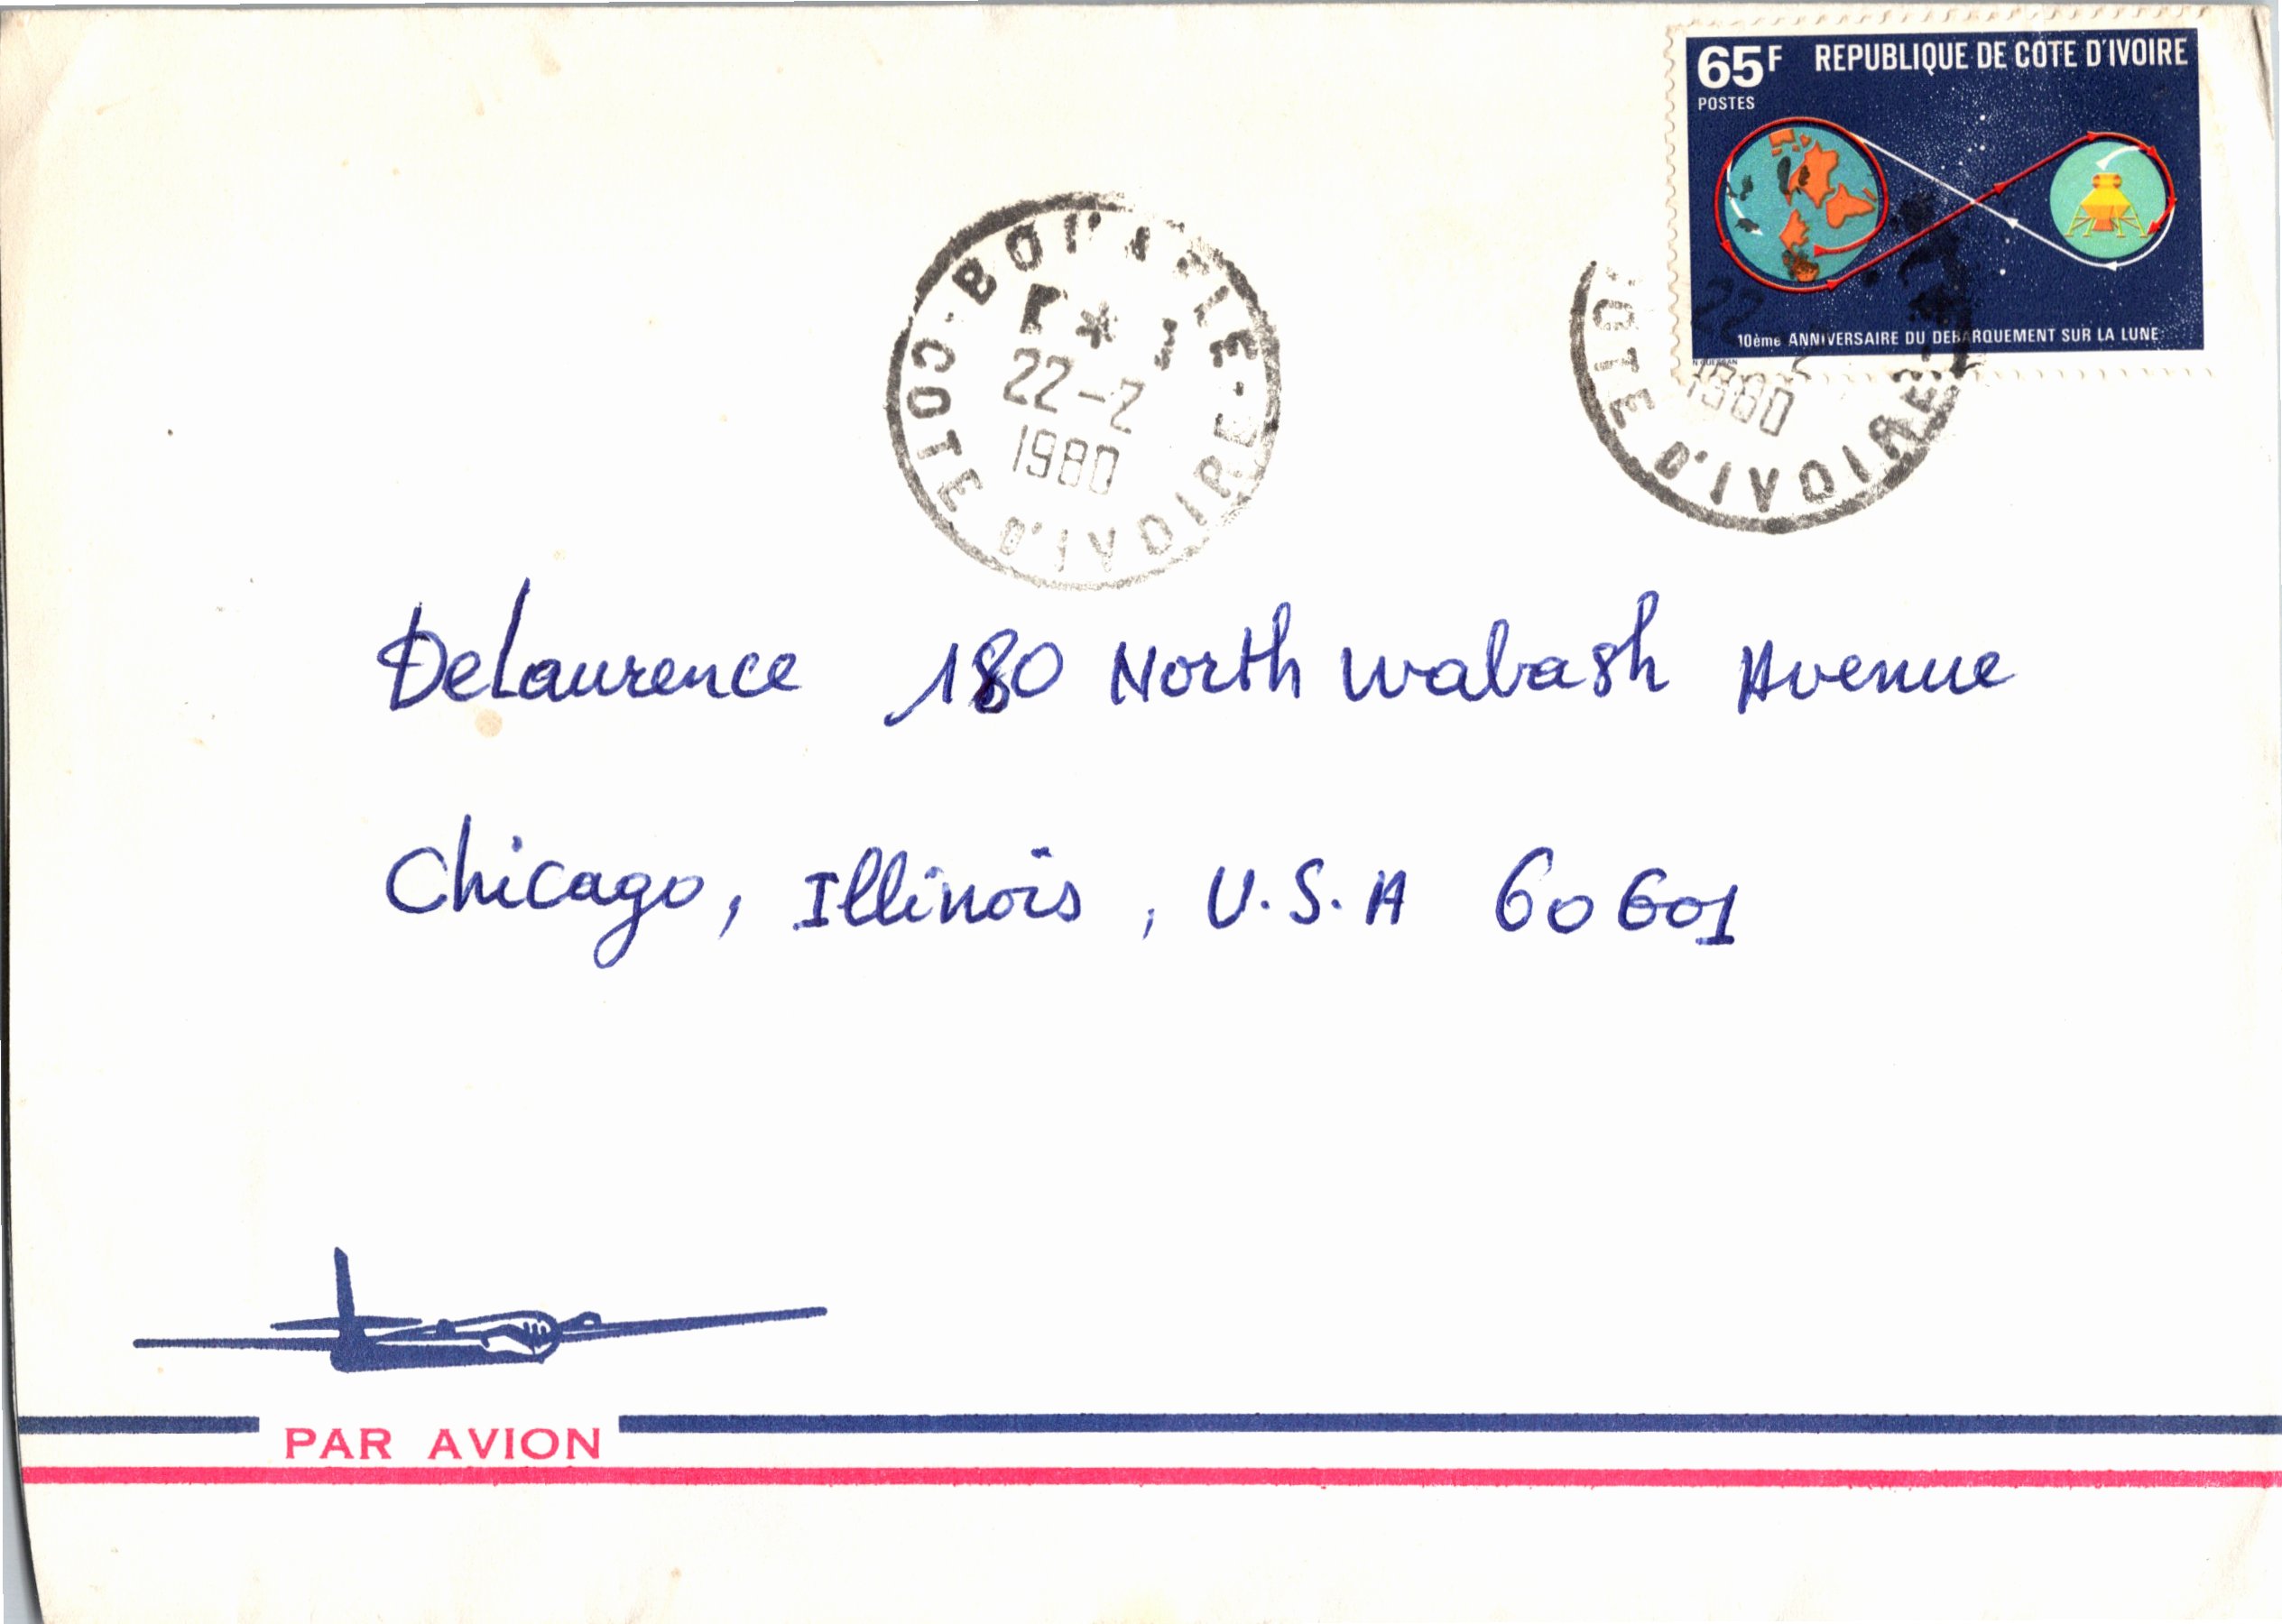 65F REPUBLIQUE DE COTE D'IVOIRE
POSTES
10ème ANNIVERSAIRE DU DEBARQUEMENT SUR LA LUNE
22-2
1980
COTE D'IVOIRE
22
1980
COTE D'IVOIRE
DeLaurence 180 North Wabash Avenue
Chicago, Illinois, U.S.A 60601
PAR AVION